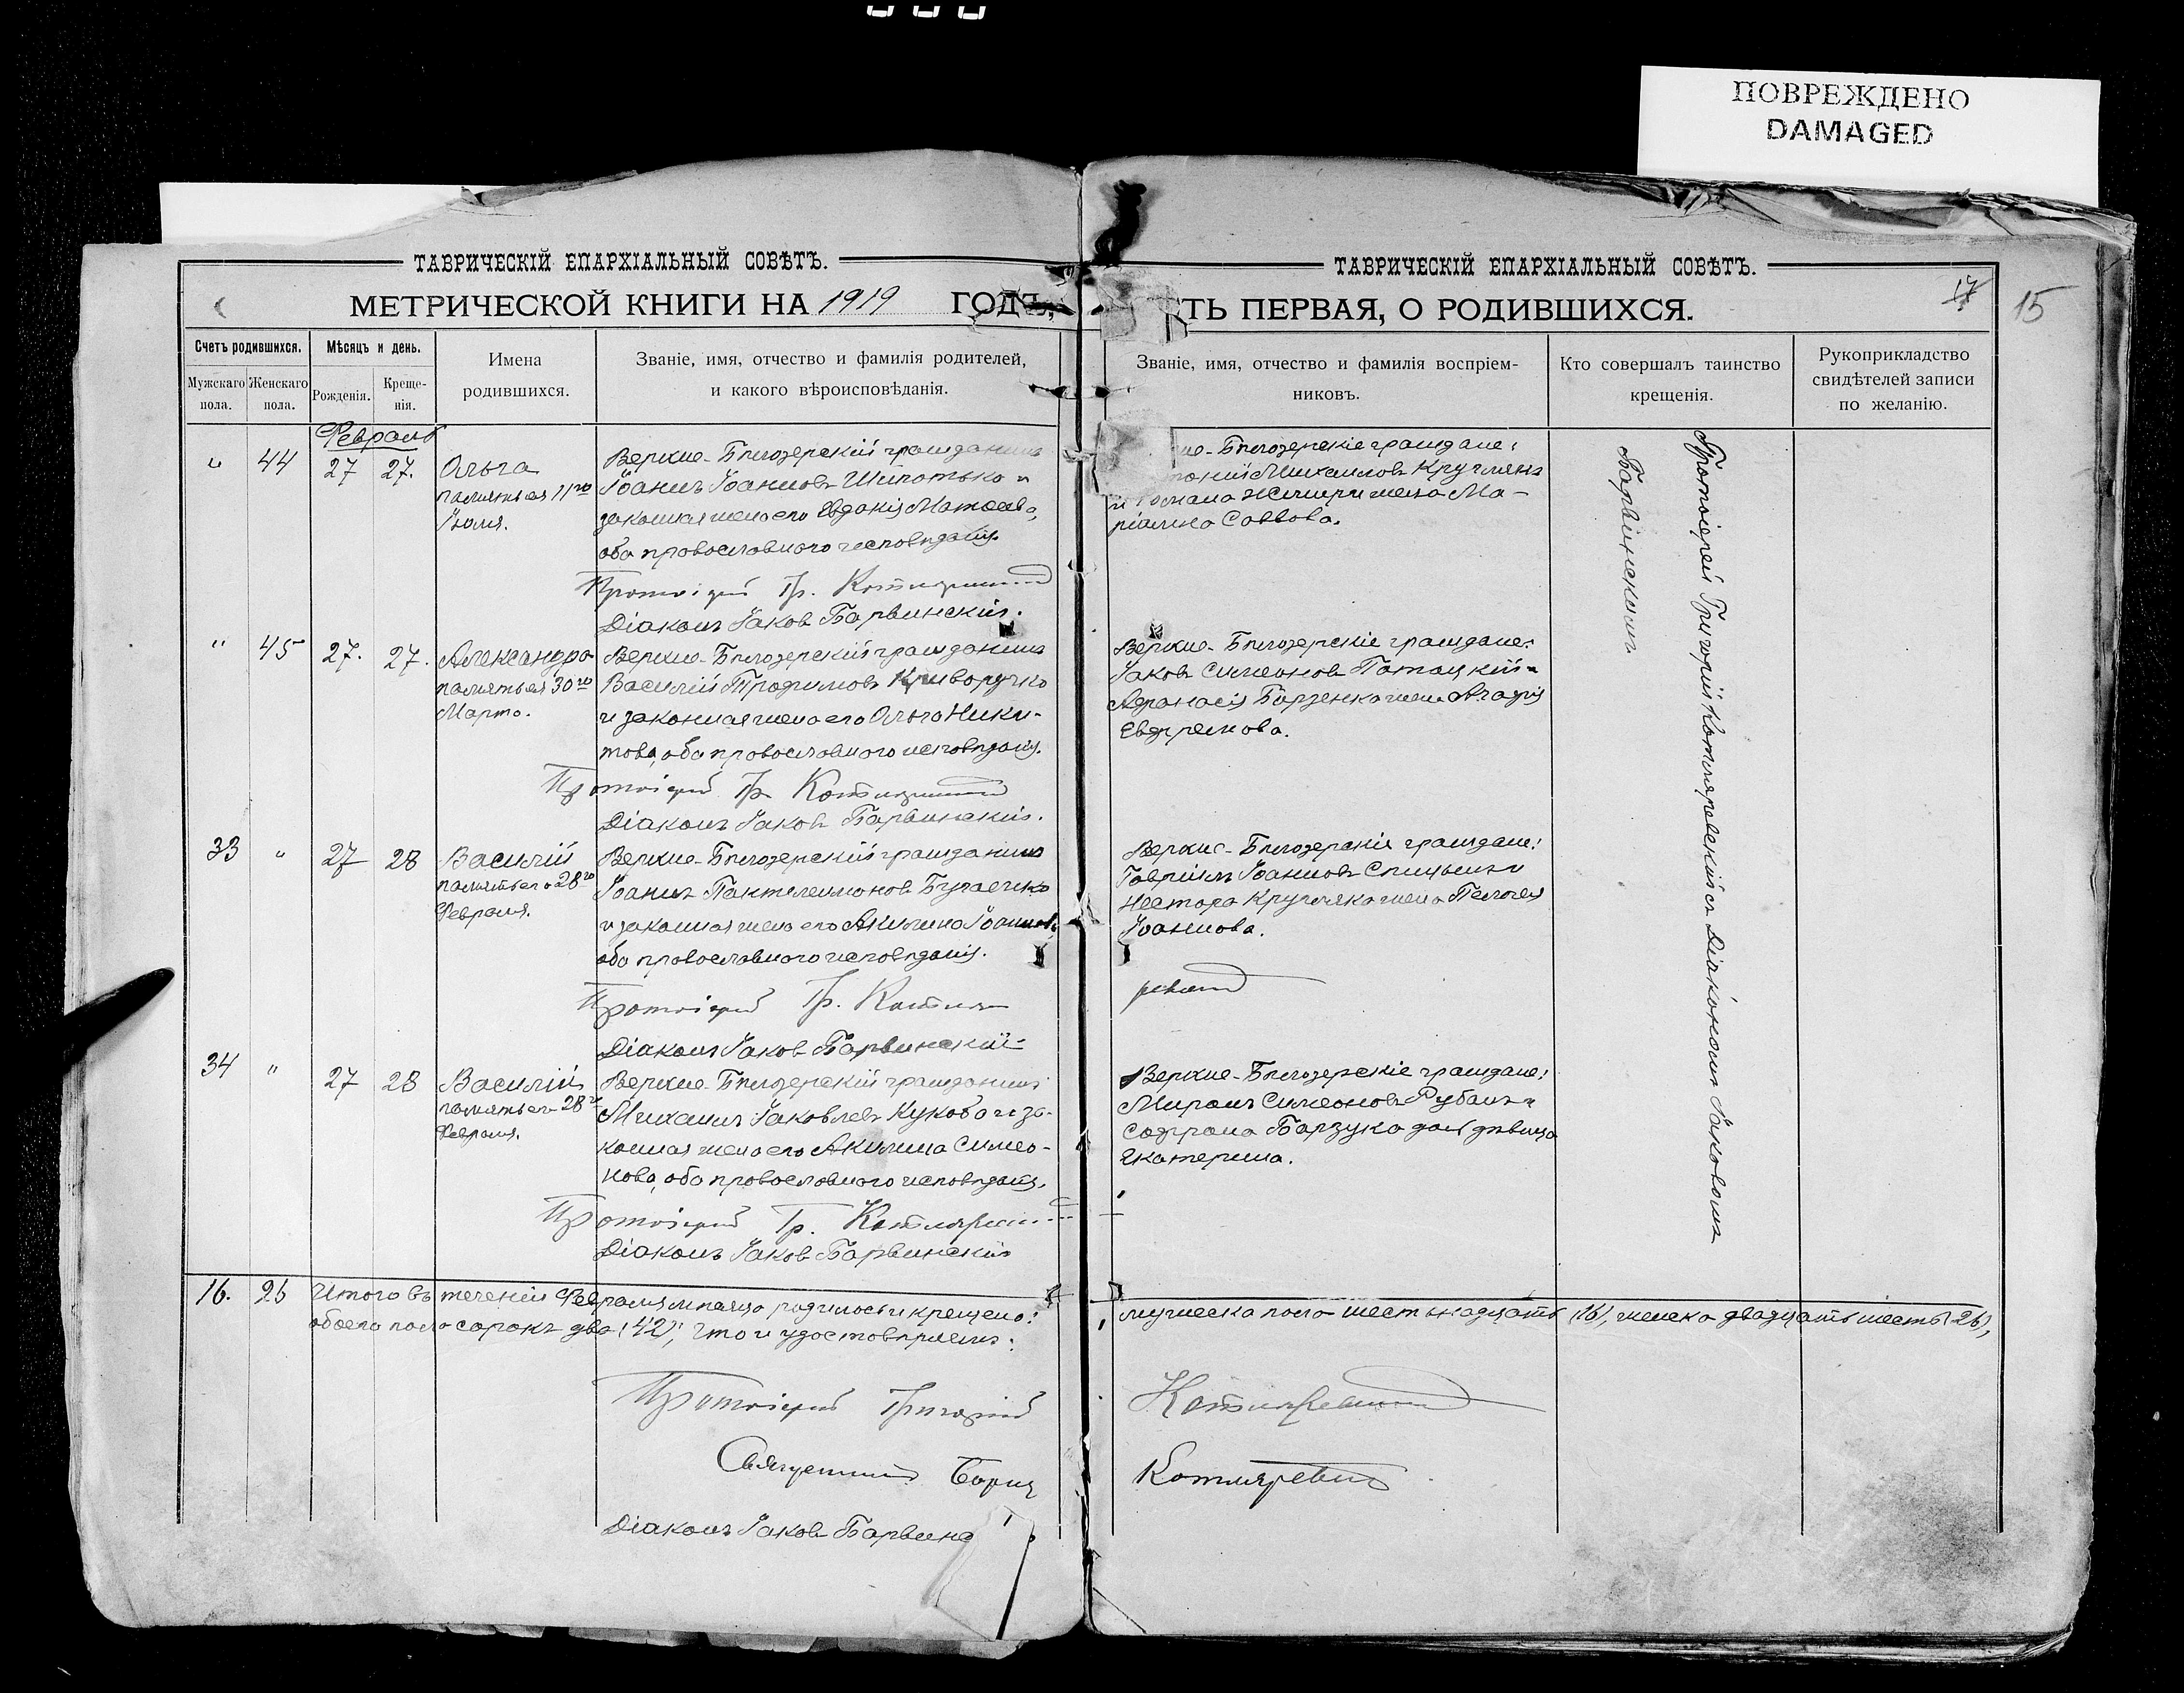 ПОВРЕЖДЕНО
DAMAGED
ТАВРИЧЕСКІЙ ЕПАРХІАЛЬНЫЙ СОВѢТЪ.
МЕТРИЧЕСКОЙ КНИГИ НА 1919 ГОДЪ,
Счетъ родившихся.
Мужскаго пола.
Женскаго пола.
Мѣсяцъ и день.
Рожденія.
Креще-
нія.
Имена
родившихся.
Званіе, имя, отчество и фамилія родителей,
и какого вѣроисповѣданія.
Февраль
" 44 27 27.
Ольга
память ея 11го
Іюля.
Верхне-Бѣлозерскій гражданинъ
Іоаннъ Іоанновъ Шипотько и
законная жена его Евдокія Матѳеева,
оба православнаго исповѣданія.
Протоіерей Гр. Котляревскій
Діаконъ Іаковъ Барвинскій.
" 45 27. 27.
Александра
память ея 30го
Марта.
Верхне-Бѣлозерскій гражданинъ
Василій Трофимовъ Криворучко
и законная жена его Ольга Ники-
това, оба православнаго исповѣданія.
Протоіерей Гр. Котляревскій
Діаконъ Іаковъ Барвинскій.
33 " 27 28
Василій
память его 28го
Февраля.
Верхне-Бѣлозерскій гражданинъ
Іоаннъ Пантелеимоновъ Бугаенко
и законная жена его Акилина Іоаннова,
оба православнаго исповѣданія.
Протоіерей Гр. Котля
Діаконъ Іаковъ Барвинскій
34 " 27 28
Василій
память его 28го
Февраля.
Верхне-Бѣлозерскій гражданинъ
Михаилъ Іаковлевъ Кукоба и за-
конная жена его Акилина Симео-
нова, оба православнаго исповѣданія.
Протоіерей Гр. Котляревскій
Діаконъ Іаковъ Барвинскій
16. 26 Итого въ теченіи Февраля мѣсяца родилось и крещено:
обоего пола сорокъ два (42), что и удостовѣряемъ:
Протоіерей Григорій
Священникъ Борис
Діаконъ Іаковъ Барвинс
ТАВРИЧЕСКІЙ ЕПАРХІАЛЬНЫЙ СОВѢТЪ.
ТЬ ПЕРВАЯ, О РОДИВШИХСЯ.
17
15
Званіе, имя, отчество и фамилія воспріем-
никовъ.
Кто совершалъ таинство
крещенія.
Рукоприкладство
свидѣтелей записи
по желанію.
не-Бѣлозерскіе граждане:
Михаиловъ Круглякъ
и Романа жена Ма-
ріамна Саввова.
Верхне-Бѣлозерскіе граждане:
Іаковъ Симеоновъ Потоцкій и
Афанасія Барзенко жена Агафія
Евфремова.
Верхне-Бѣлозерскіе граждане:
Гавріилъ Іоанновъ Спицынъ и
Нестора Кругляка жена Пелагея
Іоаннова.
ревскій
Верхне-Бѣлозерскіе граждане:
Миронъ Симеоновъ Рубанъ и
Софрона Барзука дочь дѣвица
Екатерина.
Протоіерей Григорій Котляревскій съ Діакономъ Іаковомъ
Барвинскимъ
мужеска пола шестьнадцать (16), женска двадцать шесть (26),
Котляревскій
Котляревскій